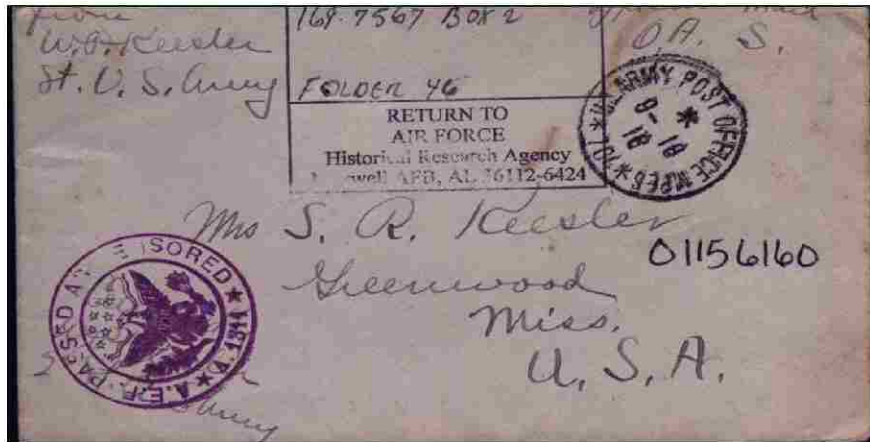 from
W.R. Keesler
Lt. U. S. Army
169.7567 BOX 2
FOLDER 46
RETURN TO
AIR FORCE
Historical Research Agency
Maxwell AFB, AL 36112-6424
Mail
O.A. S.
* U.S. ARMY POST OFFICE M.P.E.S. * 701
*
9-18
18
Mrs S. R. Keesler
Greenwood
Miss.
U. S. A.
01156160
A.E.F. PASSED AS CENSORED * A.1311 *
Army